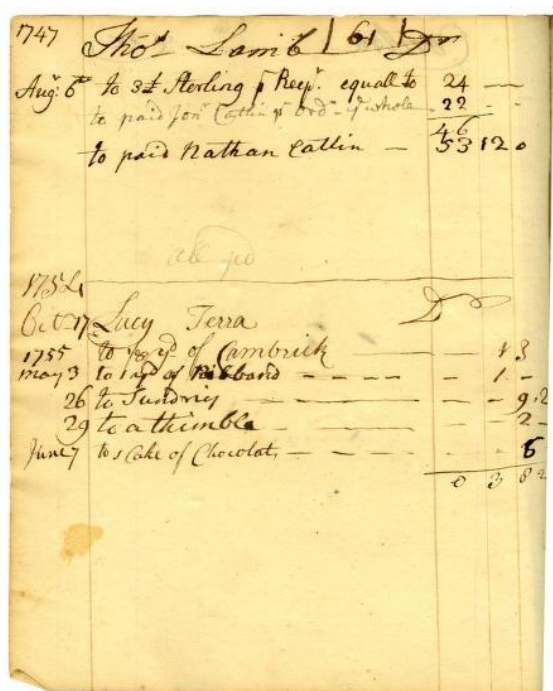 1747 Thos. Lamb 61 Dr
Augt. 6th to 3£ Sterling pr Recpt. equall to 24 — —
to paid Jonn. Catlin pr Ordr. ye whole 22 - -
46
to paid Nathan Catlin — 53 12 0
all pd
1754
Octr. 17 Lucy Terra Dr
1755 to yd of Cambrick — — 1 3
may 3 to 1 yd of Ribband - - - - - 1 -
26 to Sundrys — — — - - 9.2
29 to a thimble — — — - - 2 -
June 7 to 1 Cake of Chocolat, — — — - 8
0 3 8 2